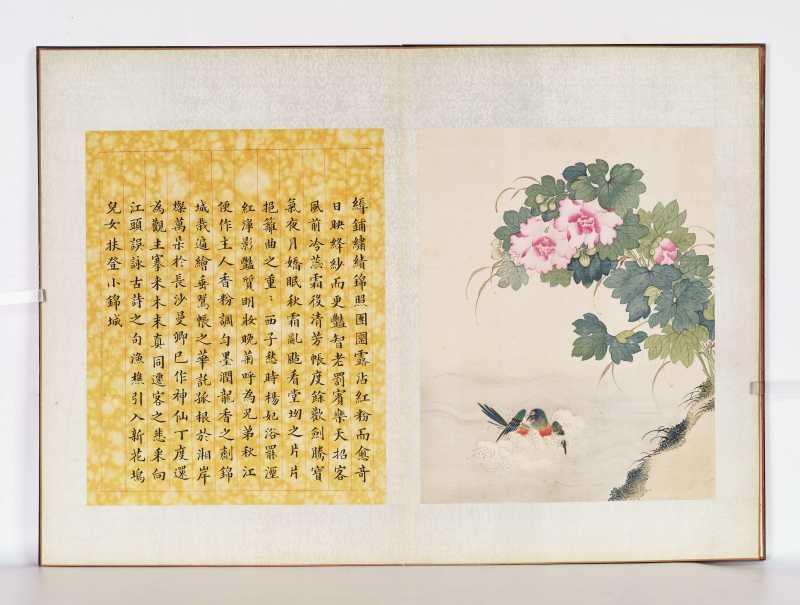 緝鋪繡緒錦照團圞露沾紅粉而愈奇
日映絳紗而更豔智老罰賓樂天招客
風前冷燕霜後清芳帳度餘歡劍騰寶
氣夜月嬌眠秋霜亂颭看堂坳之片片
挹籬曲之重〻西子愁時楊妃浴罷溼
紅淨影豔質明妝晚菊呼為兄弟秋江
便作主人香粉調勻墨潤龍香之劑錦
城栽遍繪垂鴛帳之華託孤根於湘岸
燦萬朵於長沙曼卿已作神仙丁度還
為觀主搴木末真同遷客之悲采向
江頭誤詠古詩之句漁樵引入新花塢
兒女扶登小錦城